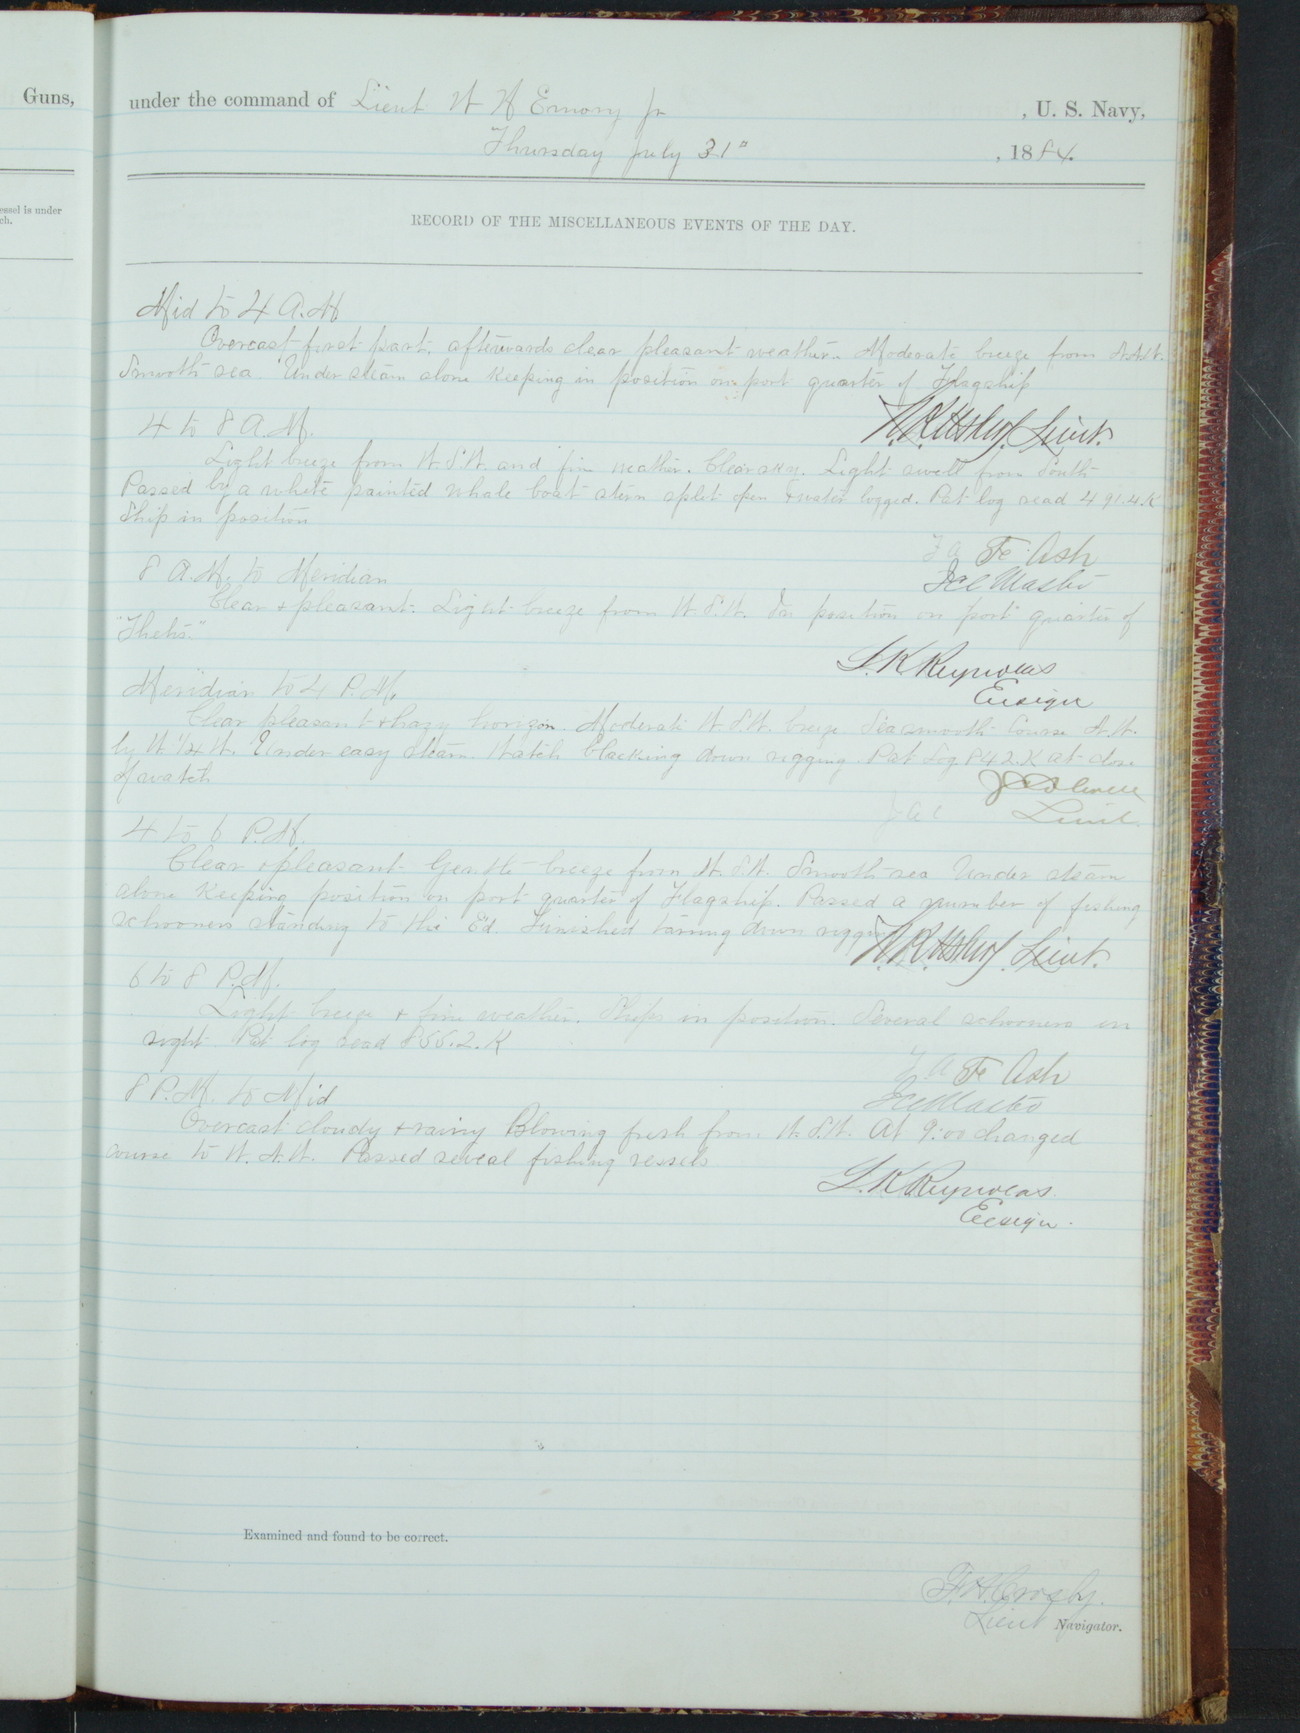 Guns,
essel is under
ch.
under the command of Lieut W H Emory Jr , U. S. Navy,
Thursday July 31st , 1884.
RECORD OF THE MISCELLANEOUS EVENTS OF THE DAY.
Mid to 4 A.M
Overcast first part, afterwards clear pleasant weather. Moderate breeze from
Smooth sea. Under steam alone keeping in position on port quarter of Flagship
Lieut.
4 to 8 A.M.
Light breeze from W.S.W. and fine weather. Clear sky. Light swell from South
Passed by a white painted whale boat stern split open & water logged. Pat log read 491.4.K
Ship in position
F. Ash
Ice Master
8 A.M. to Meridian
Clear & pleasant. Light breeze from W.S.W. In position on port quarter of
"Thetis."
L.K. Reynolds
Ensign
Meridian to 4 P.M.
Clear pleasant & hazy horizon. Moderate W.S.W. breeze Sea smooth Course
by W. 1/4 W. Under easy steam. Watch blacking down rigging. Pat Log 842.K at close
of watch
J a C Lieut.
4 to 6 P.M.
Clear & pleasant Gentle breeze from W.S.W. Smooth sea Under steam
alone keeping position on port quarter of Flagship. Passed a number of fishing
schooners standing to the E'd. Finished tarring down rigging
Lieut.
6 to 8 P.M.
Light breeze & fine weather. Ships in position. Several schooners in
sight. Pat log read 866.2.K
F. Ash
Ice Master
8 P.M. to Mid
Overcast cloudy & rainy Blowing fresh from W.S.W. At 9:00 changed
course to W.N.W. Passed several fishing vessels
L.K. Reynolds
Ensign.
Examined and found to be correct.
F.H. Crosby.
Lieut Navigator.